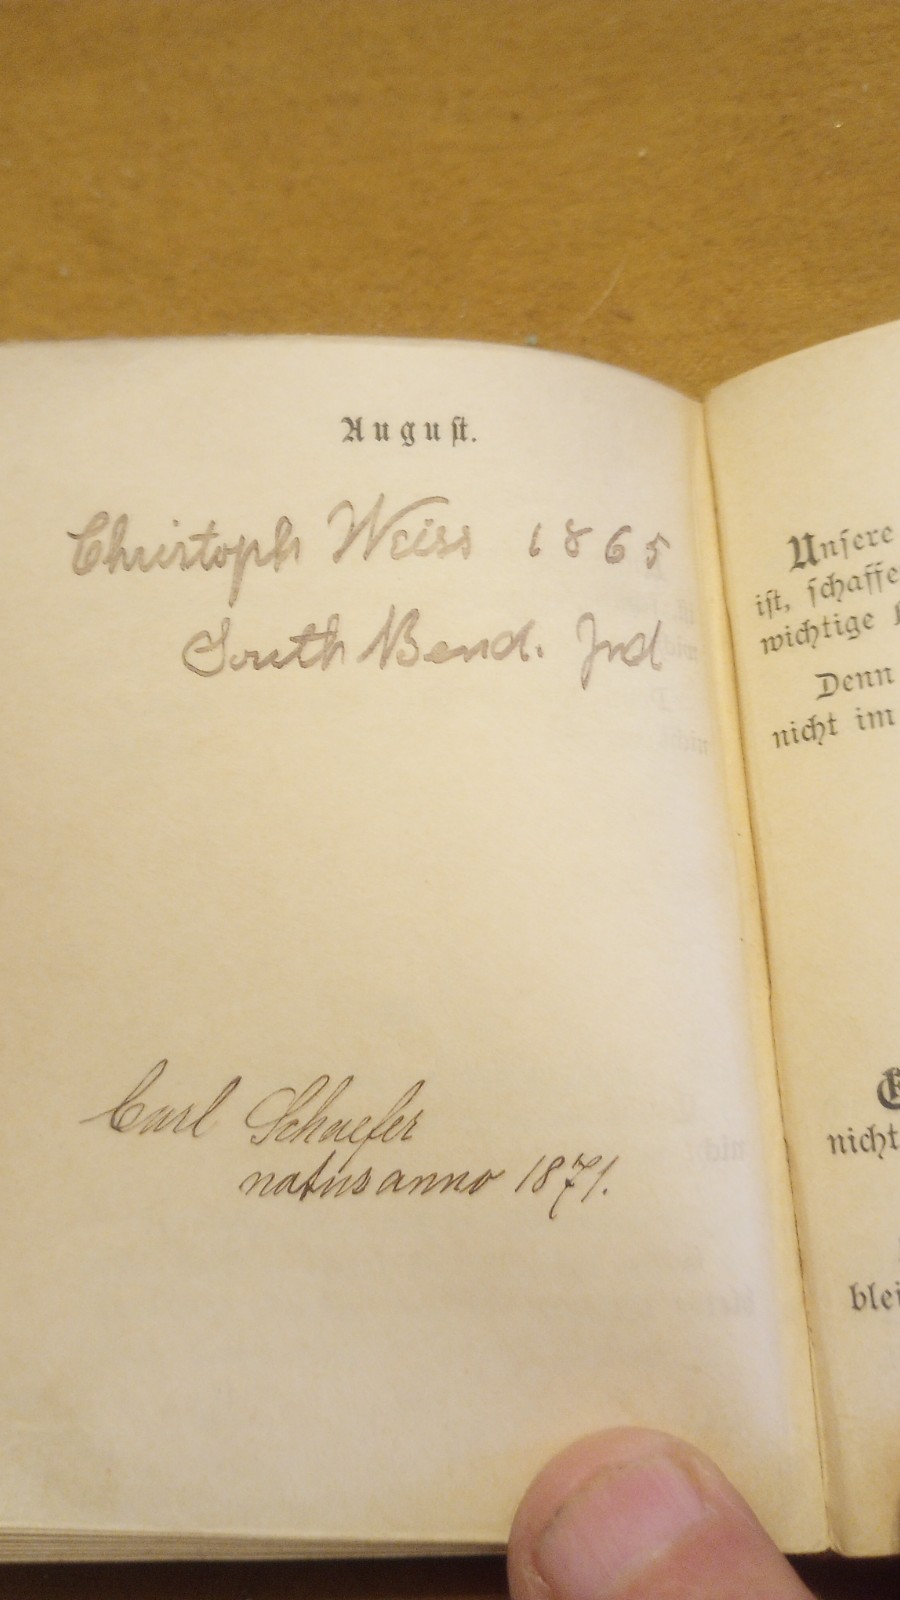 August.
Christoph Weiss 1865
South Bend. Ind
Carl Schaefer
natus anno 1871.
Unsere
ist, schaffe
wichtige
Denn
nicht im
nicht
blei